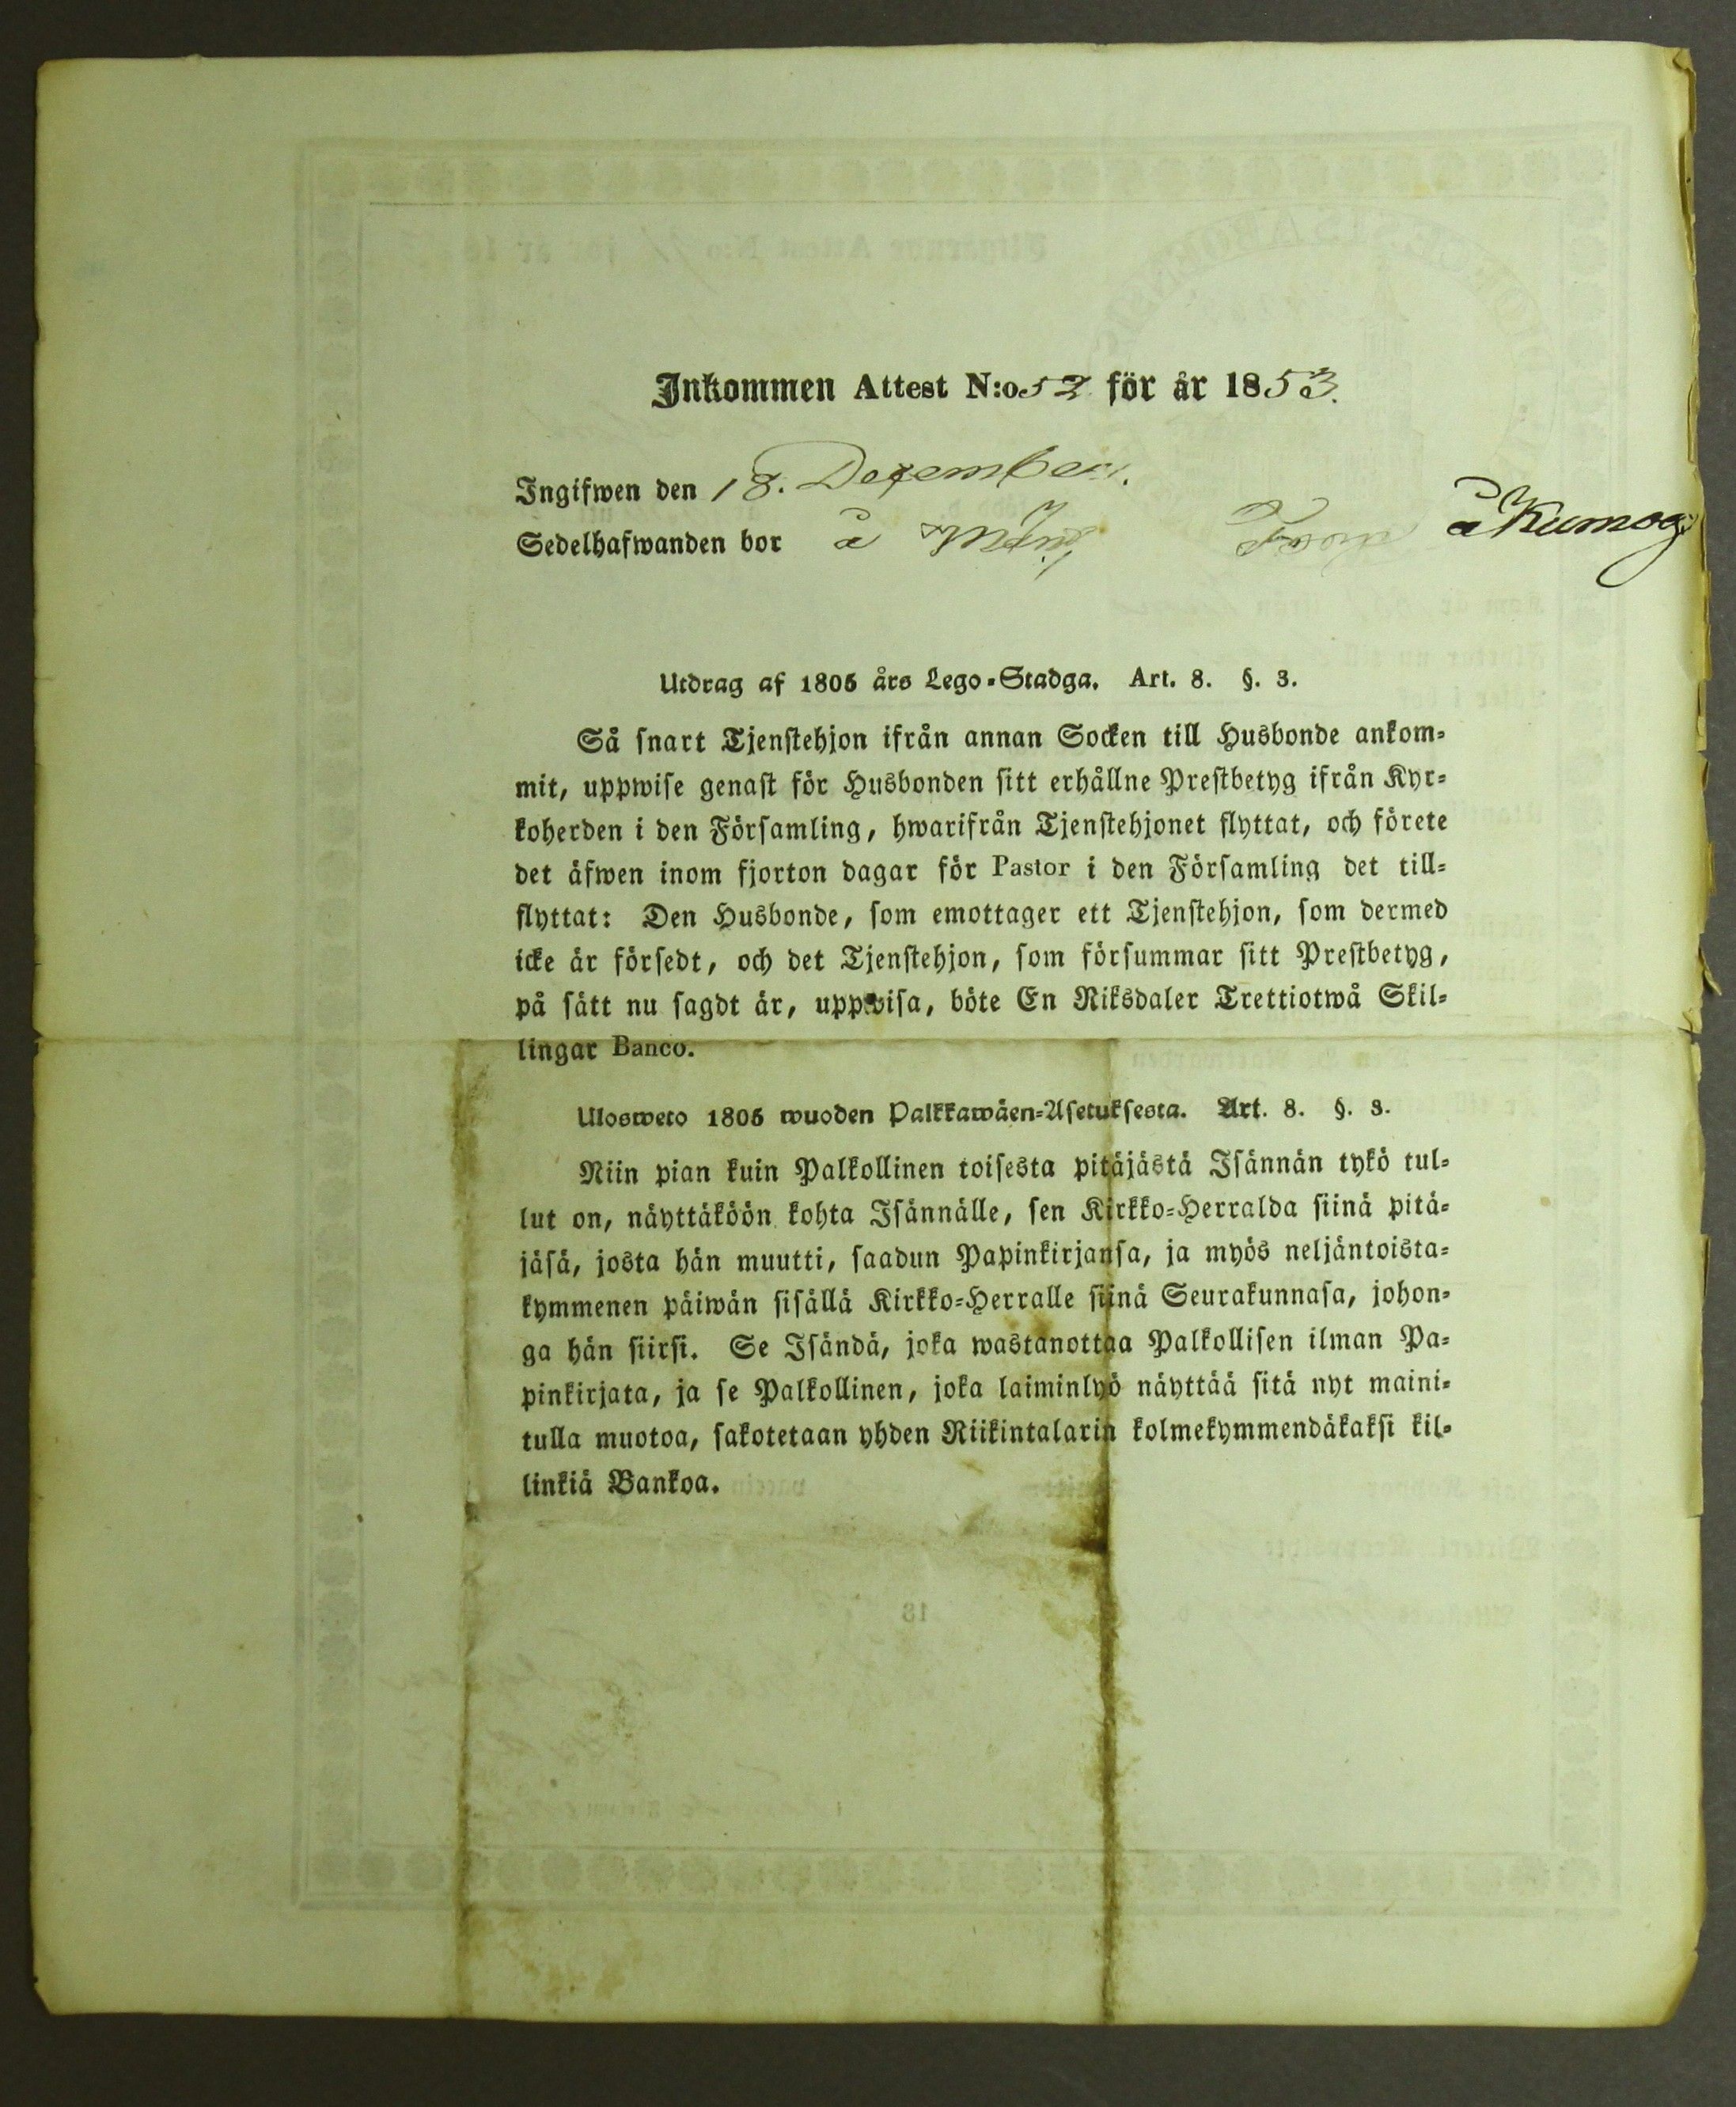 Inkommen Attest N:o 52 för år 1853.
Ingifwen den 18. December.
Sedelhafwanden bor å å Kumog
Utdrag af 1805 års Lego-Stadga. Art. 8. §. 3.
Så snart Tjenstehjon ifrån annan Socken till Husbonde ankom-
mit, uppwise genast för Husbonden sitt erhållne Prestbetyg ifrån Kyr-
koherden i den Församling, hwarifrån Tjenstehjonet flyttat, och förete
det äfwen inom fjorton dagar för Pastor i den Församling det till-
flyttat: Den Husbonde, som emottager ett Tjenstehjon, som dermed
icke är försedt, och det Tjenstehjon, som försummar sitt Prestbetyg,
på sätt nu sagdt är, uppwisa, böte En Riksdaler Trettiotwå Skil-
lingar Banco.
Ulosweto 1805 wuoden Palkkawäen-Asetuksesta. Art. 8. §. 3.
Niin pian kuin Palkollinen toisesta pitäjästä Isännän tykö tul-
lut on, näyttäköön kohta Isännälle, sen Kirkko-Herralda siinä pitä-
jäsä, josta hän muutti, saadun Papinkirjansa, ja myös neljäntoista-
kymmenen päiwän sisällä Kirkko-Herralle siinä Seurakunnasa, johon-
ga hän siirsi. Se Isändä, joka wastanottaa Palkollisen ilman Pa-
pinkirjata, ja se Palkollinen, joka laiminlyö näyttää sitä nyt maini-
tulla muotoa, sakotetaan yhden Riikintalarin kolmekymmendäkaksi kil-
linkiä Bankoa.